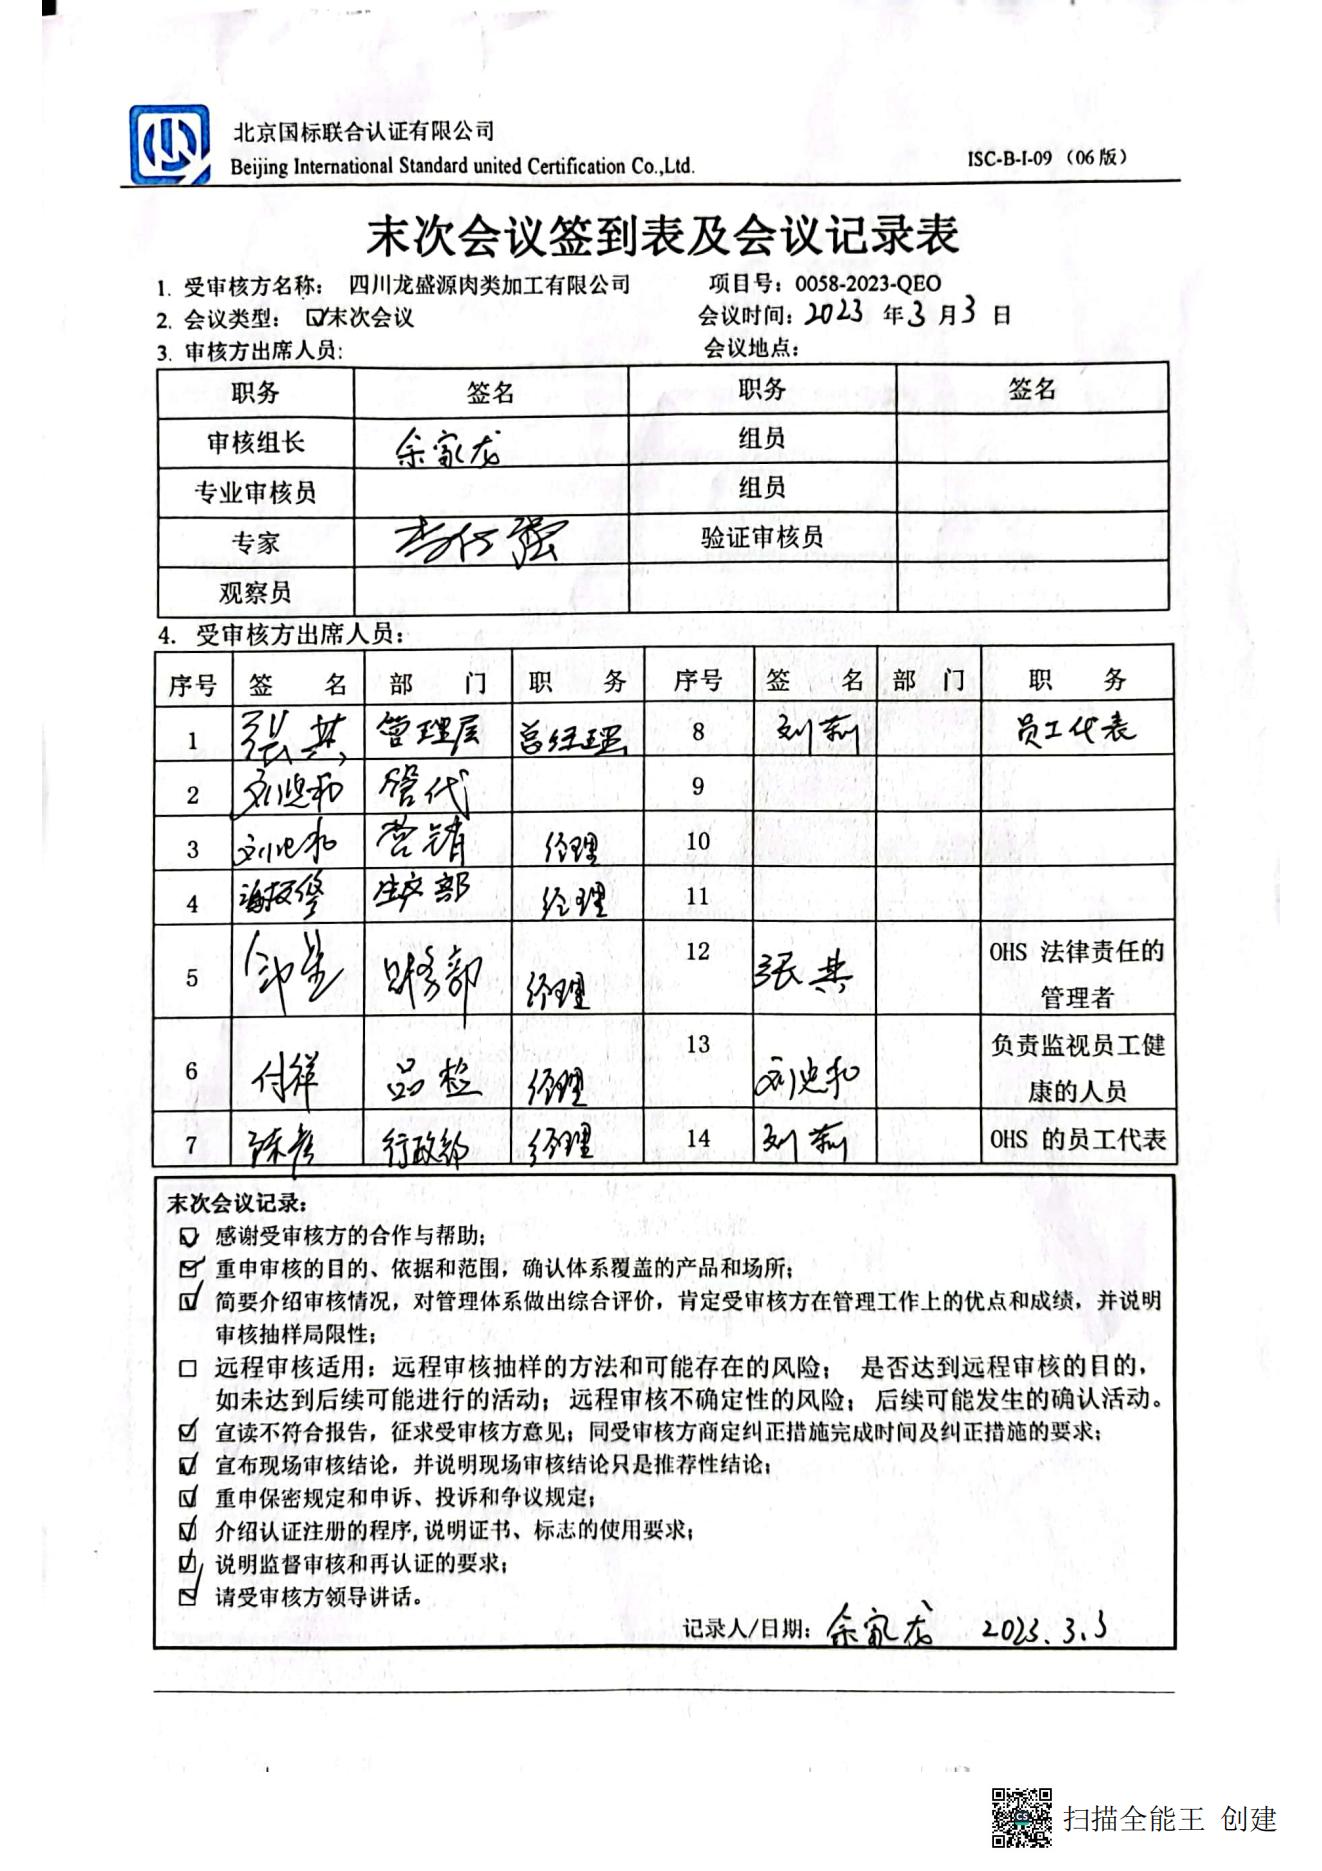 北京国标联合认证有限公司
Beijing International Standard united Certification Co.,Ltd.
ISC-B-I-09 （06 版）
末次会议签到表及会议记录表
1. 受审核方名称： 四川龙盛源肉类加工有限公司 项目号：0058-2023-QEO
2. 会议类型： ☑末次会议 会议时间：2023 年 3 月 3 日
3. 审核方出席人员： 会议地点：
职务 签名 职务 签名
审核组长 余家龙 组员
专业审核员 组员
专家 验证审核员
观察员
4. 受审核方出席人员：
序号 签 名 部 门 职 务 序号 签 名 部 门 职 务
1 张其 管理层 总经理 8 刘莉 员工代表
2 刘忠和 管代 9
3 刘忠和 营销 经理 10
4 生产部 经理 11
5 财务部 经理 12 OHS 法律责任的
管理者
6 付祥 品检 经理 13 刘忠和 负责监视员工健
康的人员
7 行政部 经理 14 刘莉 OHS 的员工代表
末次会议记录：
☑ 感谢受审核方的合作与帮助；
☑ 重申审核的目的、依据和范围，确认体系覆盖的产品和场所；
☑ 简要介绍审核情况，对管理体系做出综合评价，肯定受审核方在管理工作上的优点和成绩，并说明
审核抽样局限性；
□ 远程审核适用：远程审核抽样的方法和可能存在的风险； 是否达到远程审核的目的，
如未达到后续可能进行的活动；远程审核不确定性的风险；后续可能发生的确认活动。
☑ 宣读不符合报告，征求受审核方意见；同受审核方商定纠正措施完成时间及纠正措施的要求；
☑ 宣布现场审核结论，并说明现场审核结论只是推荐性结论；
☑ 重申保密规定和申诉、投诉和争议规定；
☑ 介绍认证注册的程序,说明证书、标志的使用要求；
☑ 说明监督审核和再认证的要求；
☑ 请受审核方领导讲话。
记录人/日期：余家龙 2023.3.3
扫描全能王 创建